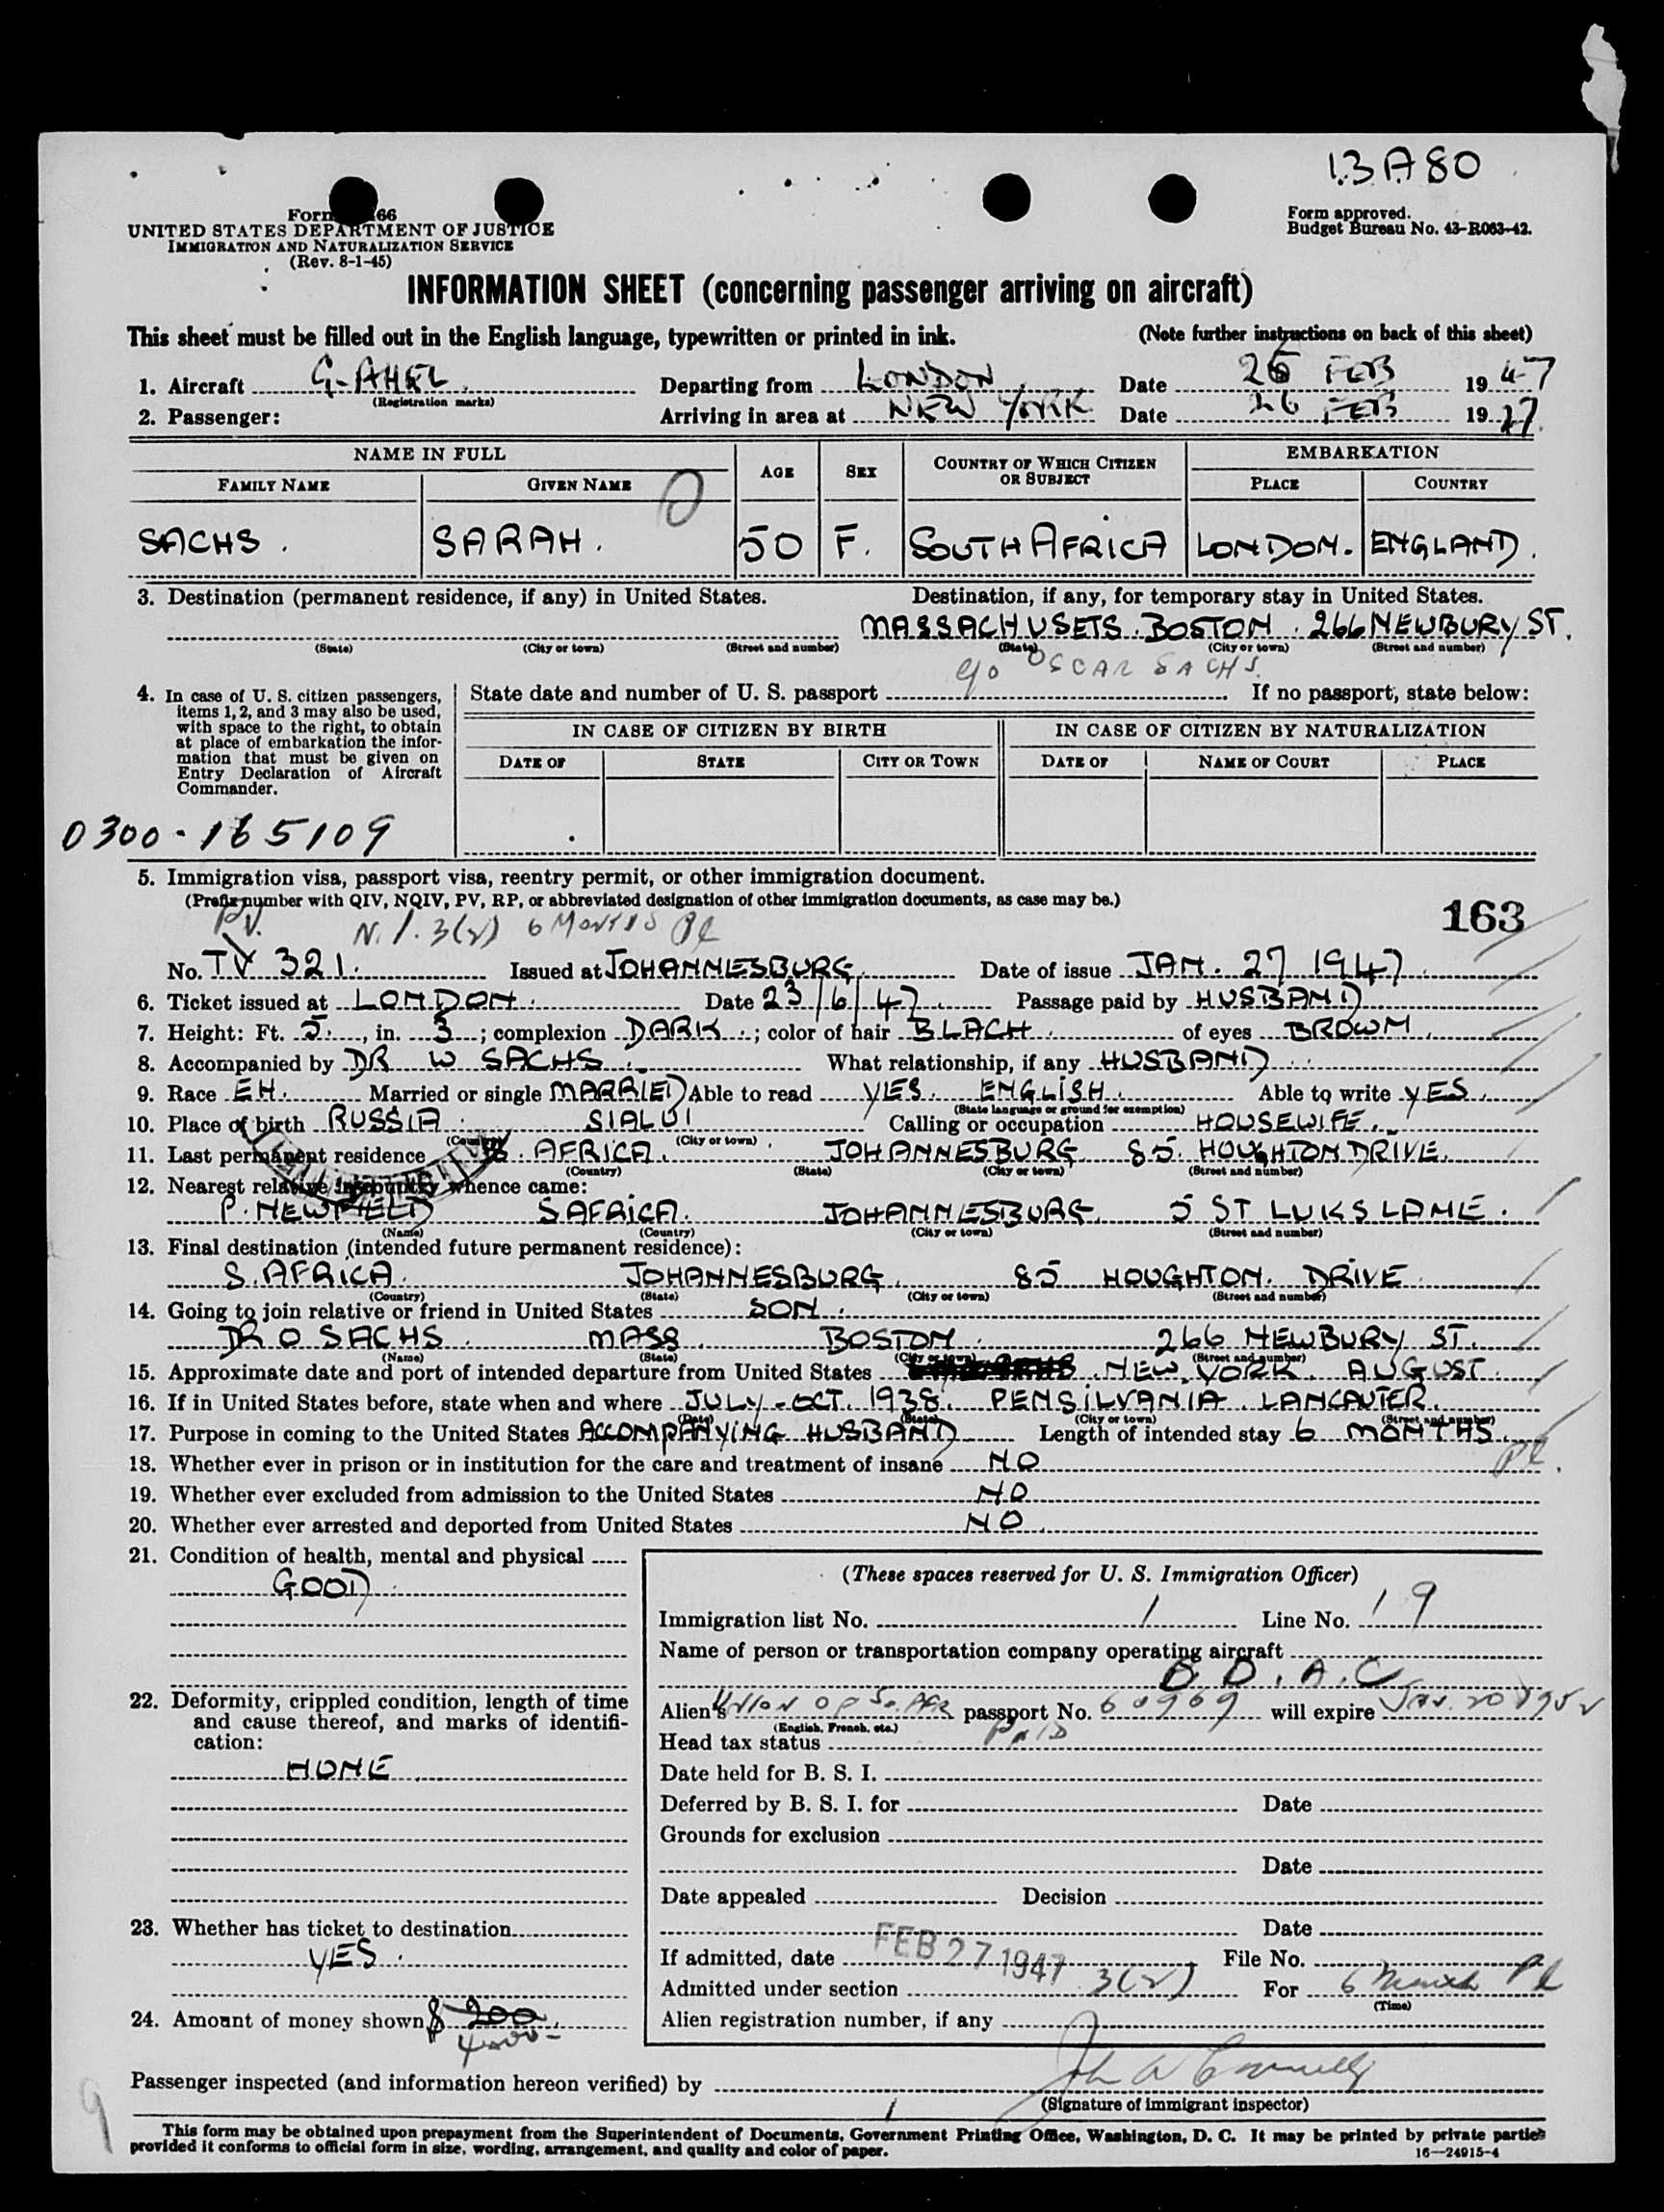 13A80
Form 66
UNITED STATES DEPARTMENT OF JUSTICE
IMMIGRATION AND NATURALIZATION SERVICE
(Rev. 8-1-45)
Form approved.
Budget Bureau No. 43-R063-42.
INFORMATION SHEET (concerning passenger arriving on aircraft)
This sheet must be filled out in the English language, typewritten or printed in ink. (Note further instructions on back of this sheet)
1. Aircraft G-AHEL Departing from LONDON Date 25 FEB 1947
(Registration marks)
2. Passenger: Arriving in area at NEW YORK Date 26 FEB 1947
NAME IN FULL AGE SEX COUNTRY OF WHICH CITIZEN OR SUBJECT EMBARKATION
FAMILY NAME GIVEN NAME PLACE COUNTRY
SACHS. SARAH. 50 F. SOUTH AFRICA LONDON. ENGLAND.
3. Destination (permanent residence, if any) in United States. Destination, if any, for temporary stay in United States.
MASSACHUSETS. BOSTON. 266 NEWBURY ST.
(State) (City or town) (Street and number) (State) (City or town) (Street and number)
c/o OSCAR SACHS.
4. In case of U. S. citizen passengers, items 1, 2, and 3 may also be used, with space to the right, to obtain at place of embarkation the information that must be given on Entry Declaration of Aircraft Commander.
State date and number of U. S. passport If no passport, state below:
IN CASE OF CITIZEN BY BIRTH IN CASE OF CITIZEN BY NATURALIZATION
DATE OF STATE CITY OR TOWN DATE OF NAME OF COURT PLACE
0300-165109
5. Immigration visa, passport visa, reentry permit, or other immigration document.
(Prefix number with QIV, NQIV, PV, RP, or abbreviated designation of other immigration documents, as case may be.)
163
PV. 3(2) 6 MONTHS Pl
No. TV 321. Issued at JOHANNESBURG. Date of issue JAN. 27 1947
6. Ticket issued at LONDON. Date 23/6/47 Passage paid by HUSBAND
7. Height: Ft. 5, in. 3; complexion DARK; color of hair BLACH of eyes BROWN.
8. Accompanied by DR W SACHS. What relationship, if any HUSBAND
9. Race EH. Married or single MARRIED Able to read YES. ENGLISH. Able to write YES.
(State language or ground for exemption)
10. Place of birth RUSSIA SIALUI Calling or occupation HOUSEWIFE.
(Country) (City or town)
11. Last permanent residence S. AFRICA. JOHANNESBURG 85. HOUGHTON DRIVE.
(Country) (State) (City or town) (Street and number)
12. Nearest relative in country whence came:
P. NEWFIELD S AFRICA. JOHANNESBURG. 5 ST LUKS LANE.
(Name) (Country) (City or town) (Street and number)
13. Final destination (intended future permanent residence):
S. AFRICA. JOHANNESBURG. 85 HOUGHTON. DRIVE
(Country) (State) (City or town) (Street and number)
14. Going to join relative or friend in United States SON.
DR O SACHS. MASS. BOSTON. 266 NEWBURY ST.
(Name) (State) (City or town) (Street and number)
15. Approximate date and port of intended departure from United States NEW YORK. AUGUST
16. If in United States before, state when and where JULY-OCT. 1938. PENSILVANIA. LANCAUTER.
(Date) (State) (City or town) (Street and number)
17. Purpose in coming to the United States ACCOMPANYING HUSBAND Length of intended stay 6 MONTHS.
Pl.
18. Whether ever in prison or in institution for the care and treatment of insane NO
19. Whether ever excluded from admission to the United States NO
20. Whether ever arrested and deported from United States NO
21. Condition of health, mental and physical
GOOD
22. Deformity, crippled condition, length of time and cause thereof, and marks of identification:
NONE
23. Whether has ticket to destination
YES.
24. Amount of money shown $ 200
4000-
(These spaces reserved for U. S. Immigration Officer)
Immigration list No. 1 Line No. 19
Name of person or transportation company operating aircraft
B.O.A.C
Alien's UNION OF SO. AFR passport No. 60969 will expire JAN. 20 1952
(English, French, etc.)
Head tax status PAID
Date held for B. S. I.
Deferred by B. S. I. for Date
Grounds for exclusion
Date
Date appealed Decision
Date
If admitted, date FEB 27 1947 File No.
Admitted under section 3(2) For 6 Month Pl
(Time)
Alien registration number, if any
Passenger inspected (and information hereon verified) by John W Connelly
(Signature of immigrant inspector)
9
This form may be obtained upon prepayment from the Superintendent of Documents, Government Printing Office, Washington, D. C. It may be printed by private parties
provided it conforms to official form in size, wording, arrangement, and quality and color of paper. 16—24915-4